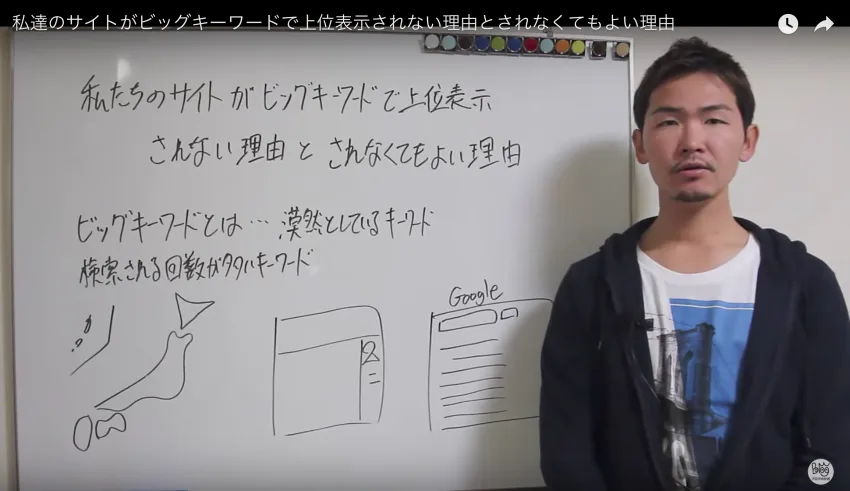 私達のサイトがビッグキーワードで上位表示されない理由とされなくてもよい理由
私たちのサイトがビッグキーワードで上位表示
されない理由とされなくてもよい理由
ビッグキーワードとは…漠然としているキーワード
検索される回数が多いキーワード
Google
Blog